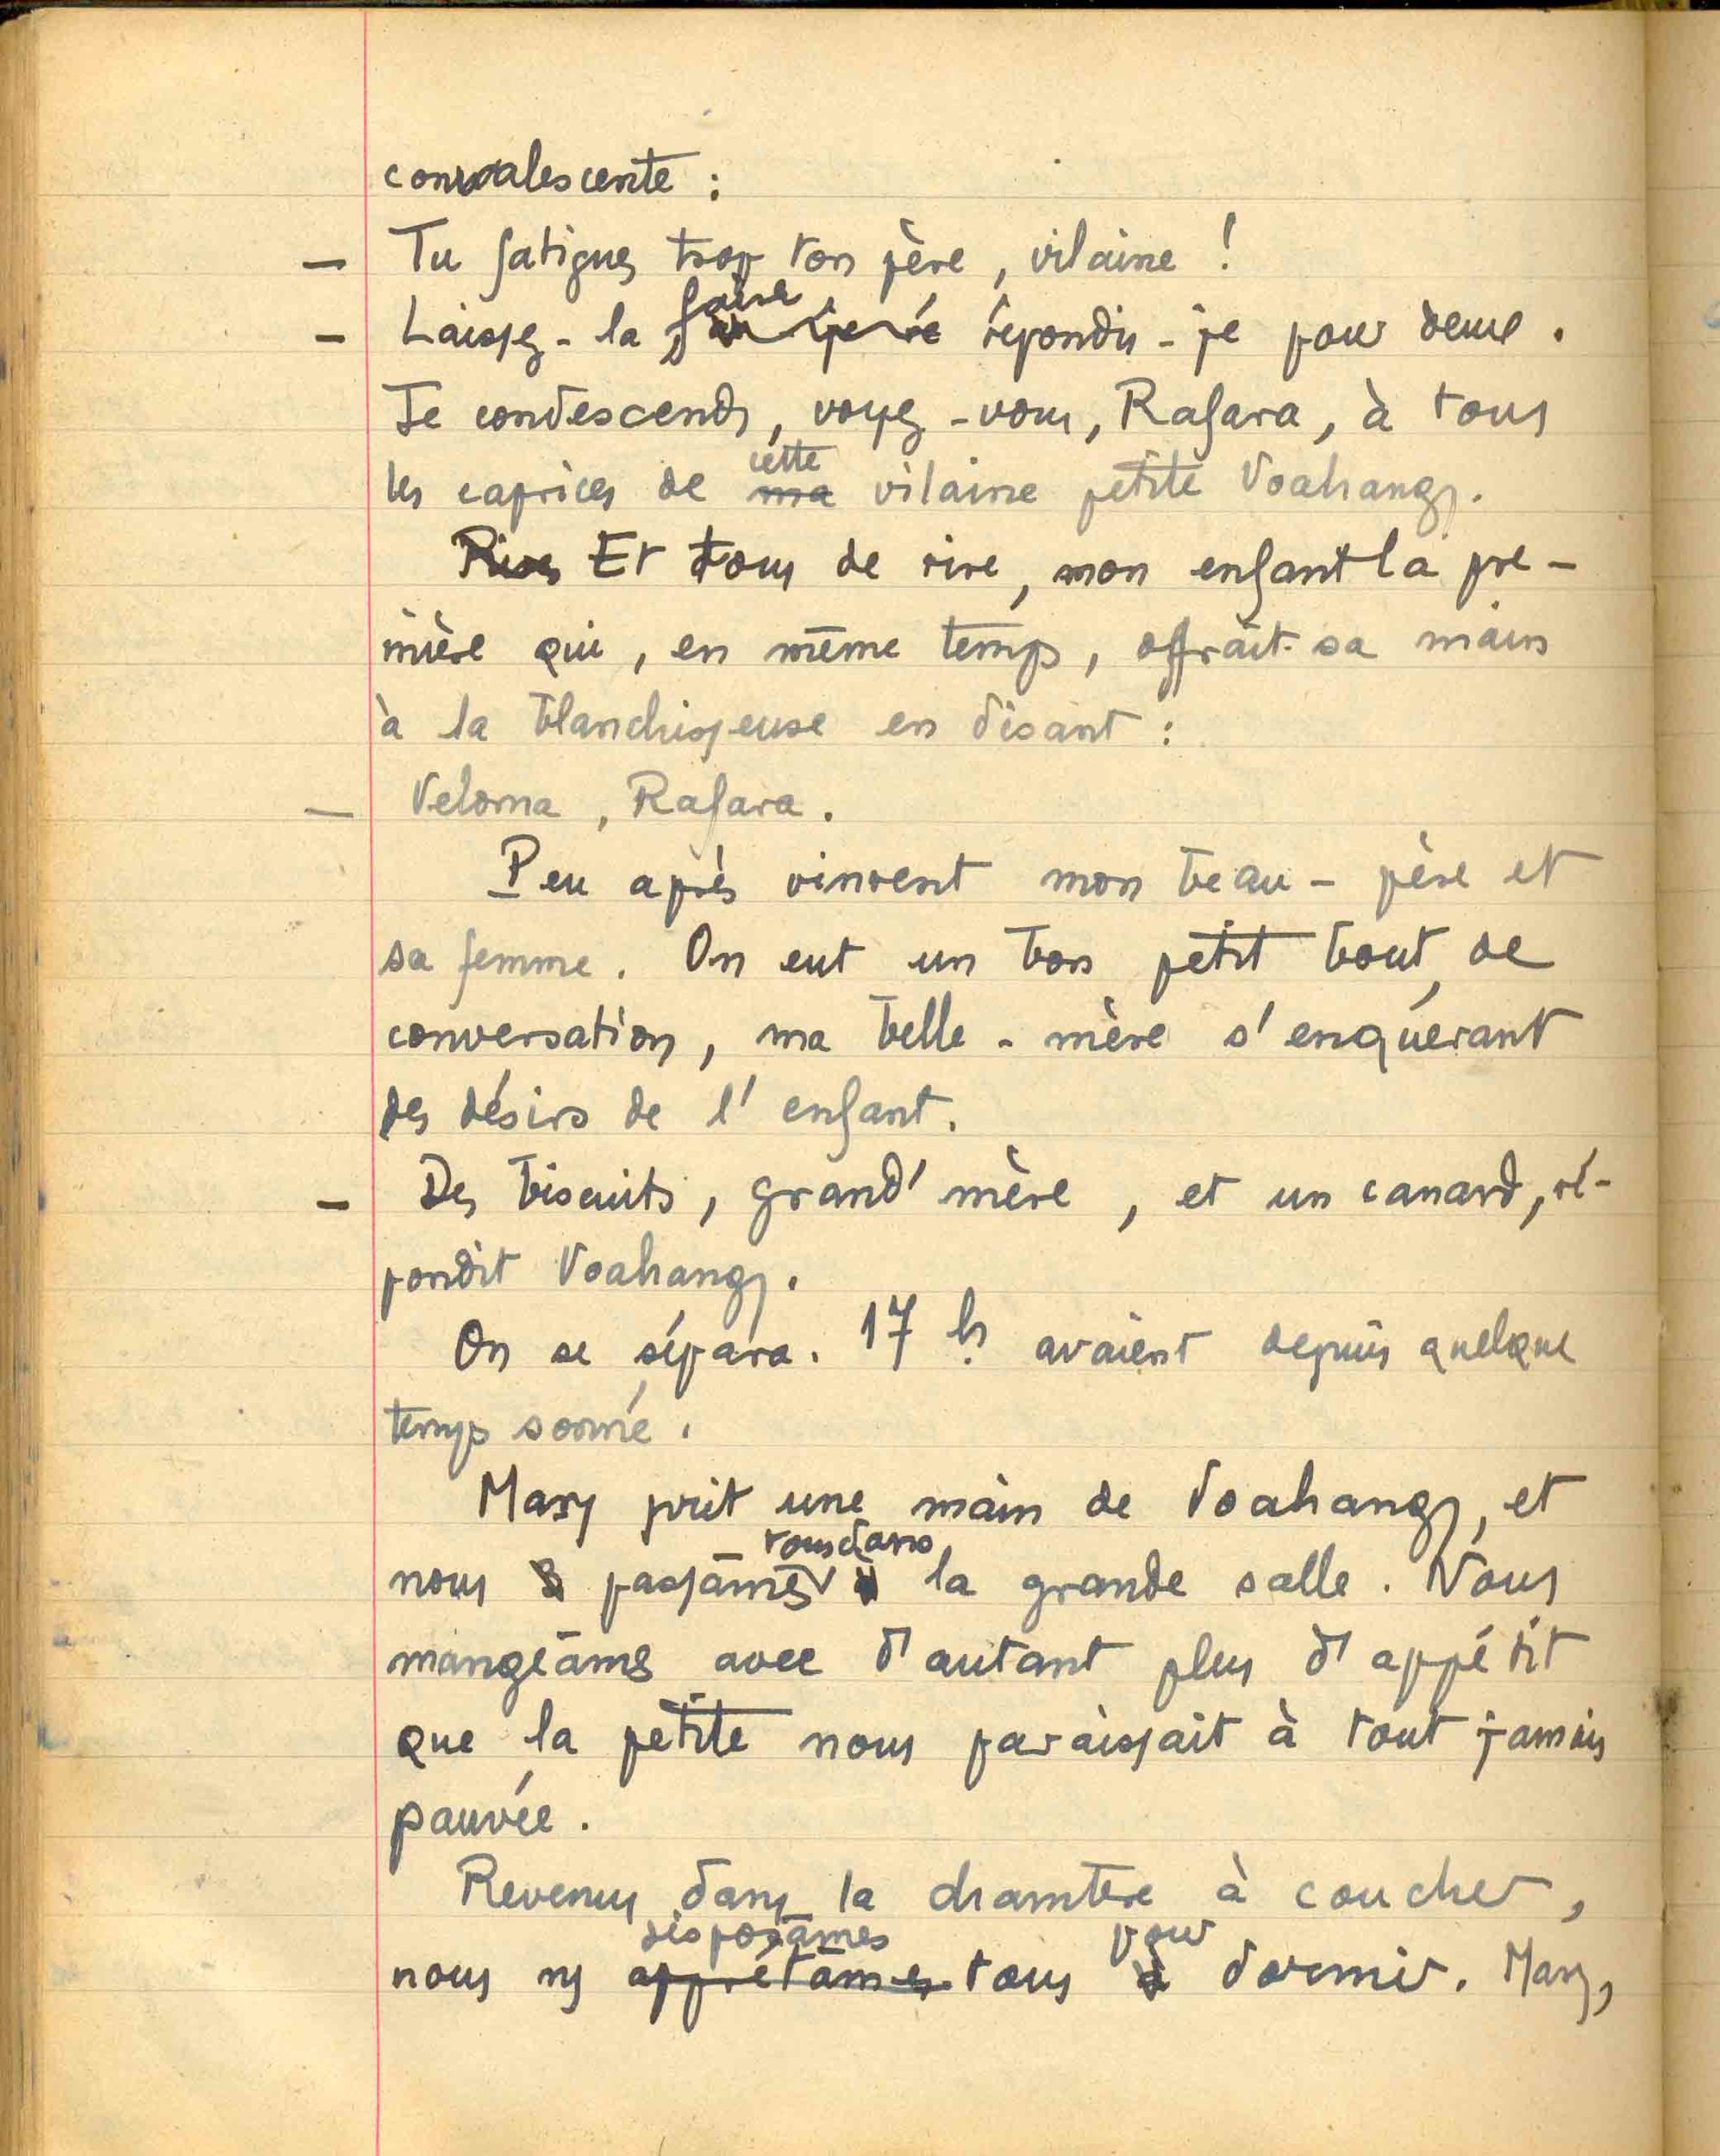 convalescente :
— Tu fatigues trop ton père, vilaine !
— Laissez-la faire répondis-je pour deux.
Je condescends, voyez-vous, Rafara, à tous
les caprices de ma cette vilaine petite Voahangy.
Rires Et tous de rire, mon enfant la pre-
mière qui, en même temps, offrait sa main
à la blanchisseuse en disant :
— Veloma, Rafara.
Peu après vinrent mon beau-père et
sa femme. On eut un bon petit bout de
conversation, ma belle-mère s'enquérant
des désirs de l'enfant.
— Des biscuits, grand'mère, et un canard, ré-
pondit Voahangy.
On se sépara. 17 h avaient depuis quelque
temps sonné.
Mary prit une main de Voahangy, et
nous passâmes tous dans la grande salle. Nous
mangeâmes avec d'autant plus d'appétit
que la petite nous paraissait à tout jamais
sauvée.
Revenus dans la chambre à coucher,
nous ns apprêtâmes disposâmes tous à pour dormir. Mary,